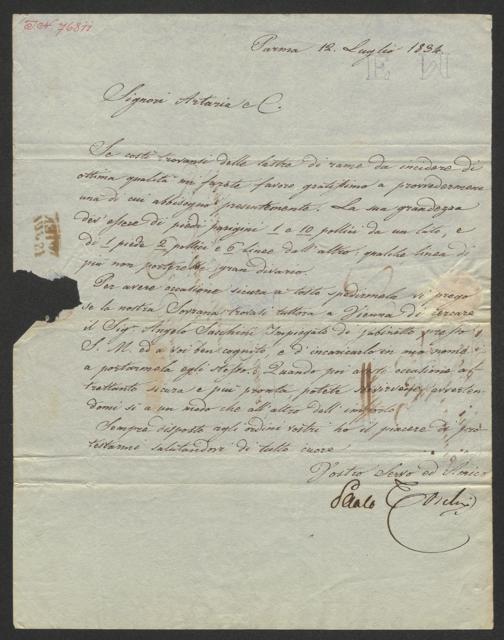 I.N. 76811
Parma 12. Luglio 1834.
Signori Artaria e C.
Se costì trovansi delle lastre di rame da incidere di
ottima qualità mi farete favore gratissimo a provvedermene
una di cui abbisogno presentemente. La sua grandezza
dev'essere di piedi parigini 1 e 10 pollici da un lato, e
di 1 piede 2 pollici e 6 linee dall'altro: qualche linea di
più non porterebbe gran divario.
Per avere occasione sicura a tosto spedirmela vi prego
se la nostra Sovrana trovasi tuttora a Vienna di cercare
il Sig. Angelo Sacchini Impiegato di gabinetto presso
S. M. ed a voi ben cognito, e d'incaricarlo in mio nome
a portarmela egli stesso. Quando poi altra occasione al
trettanto sicura e più pronta, potete servirvene avverten-
domi sì a un modo che all'altro dell'importo.
Sempre disposto agli ordini vostri ho il piacere di pro
testarmi salutandovi di tutto cuore
Vostro Servo ed Amico
Paolo Toschi